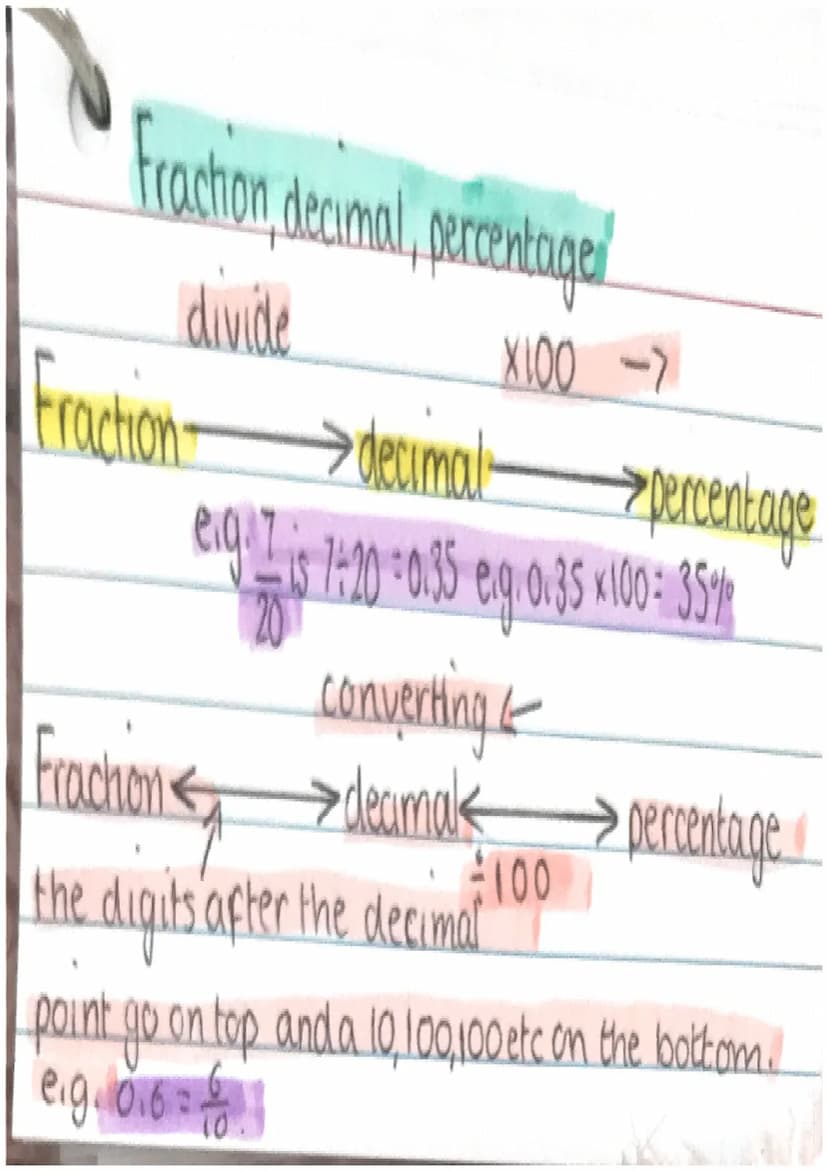 Fraction, decimal, percentage
divide
x100 →
Fraction → decimal → percentage
e.g. 7/20 is 7÷20 = 0.35 e.g. 0.35 x100 = 35%
converting ←
Fraction ↔ decimal ↔ percentage
÷100
the digits after the decimal
point go on top and a 10,100,100 etc on the bottom.
e.g. 0.6 = 6/10.